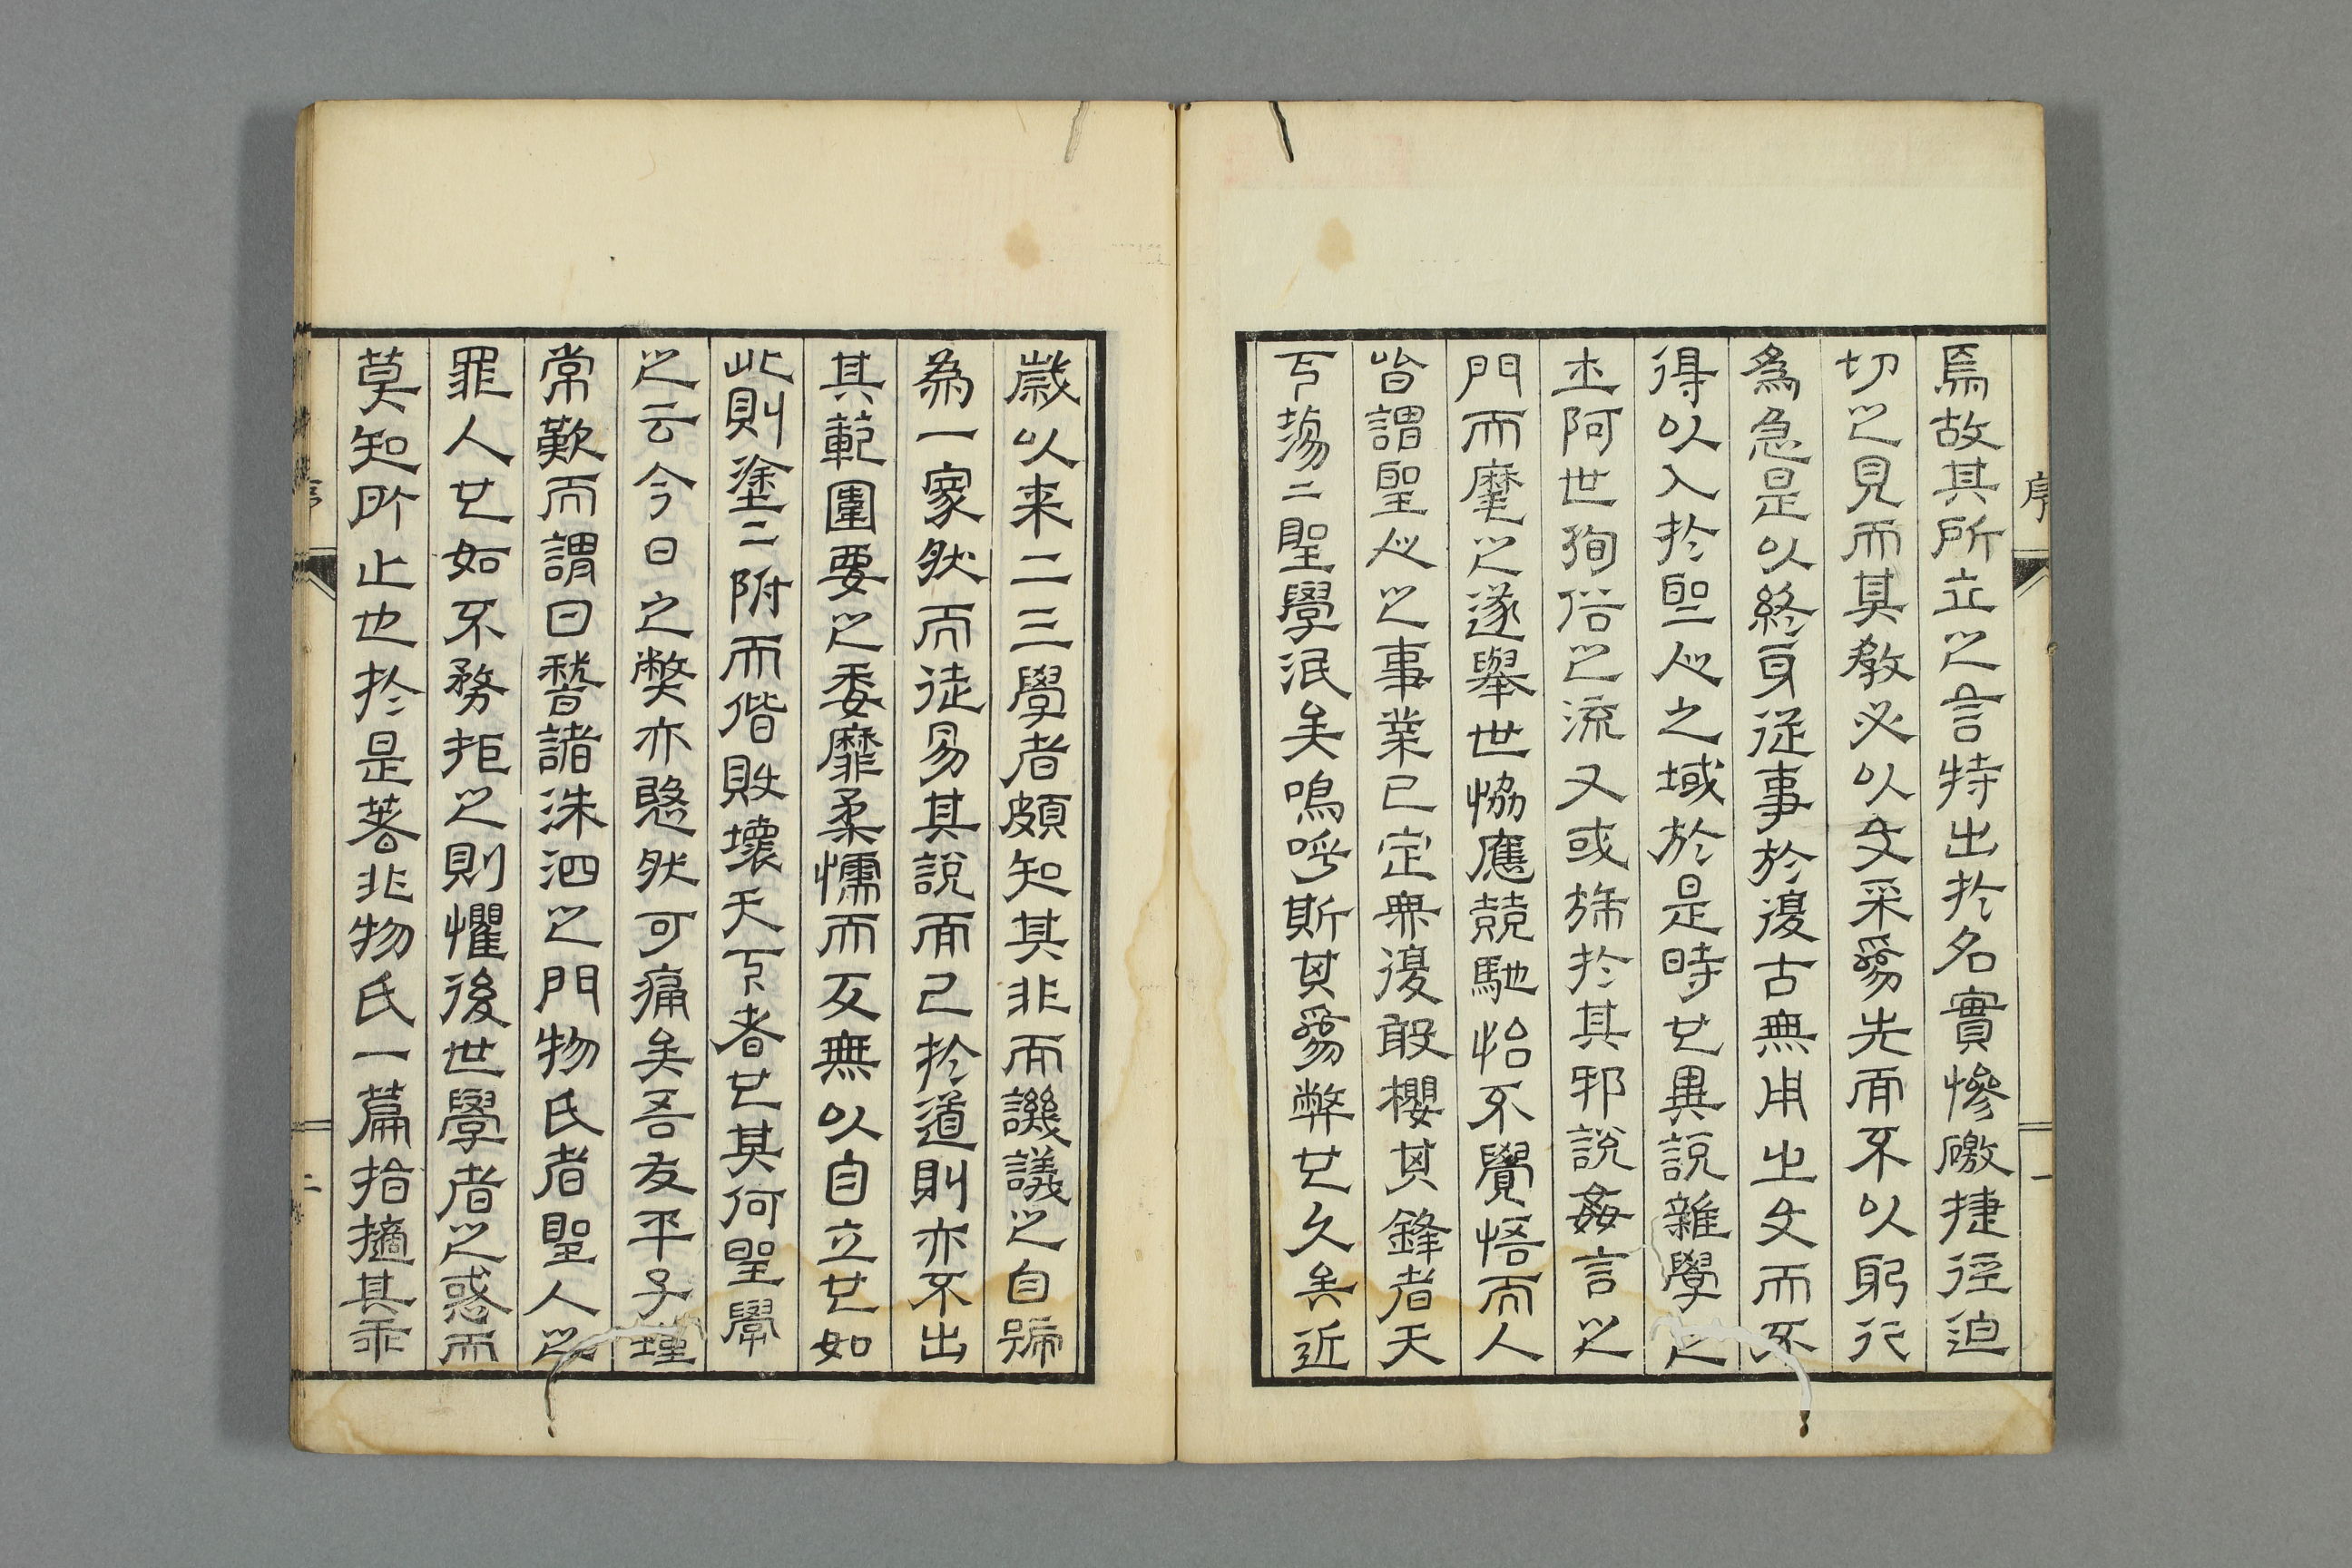 序
一
焉故其所立之言特出於名實慘礉捷徑迫
切之見而其教必以文采爲先而不以躬行
爲急是以終身從事於復古無用之文而不
得以入於聖人之域於是時也異說雜學之
士阿世徇俗之流又或旅於其邪說姦言之
門而麾之遂舉世協應競馳怡不覺悟而人
皆謂聖人之事業已定無復敢櫻其鋒者天
下蕩二聖學泯矣嗚呼斯其爲弊也久矣近
歲以来二三學者頗知其非而譏議之自號
為一家然而徒易其說而已於道則亦不出
其範圍要之委靡柔懦而又無以自立也如
此則塗二附而偕敗壞天下者也其何聖學
之云今日之弊亦愍然可痛矣吾友平子瑾
常歎而謂曰替諸洙泗之門物氏者聖人之
罪人也如不務拒之則懼後世學者之惑而
莫知所止也於是著非物氏一篇指擿其乖
序
二